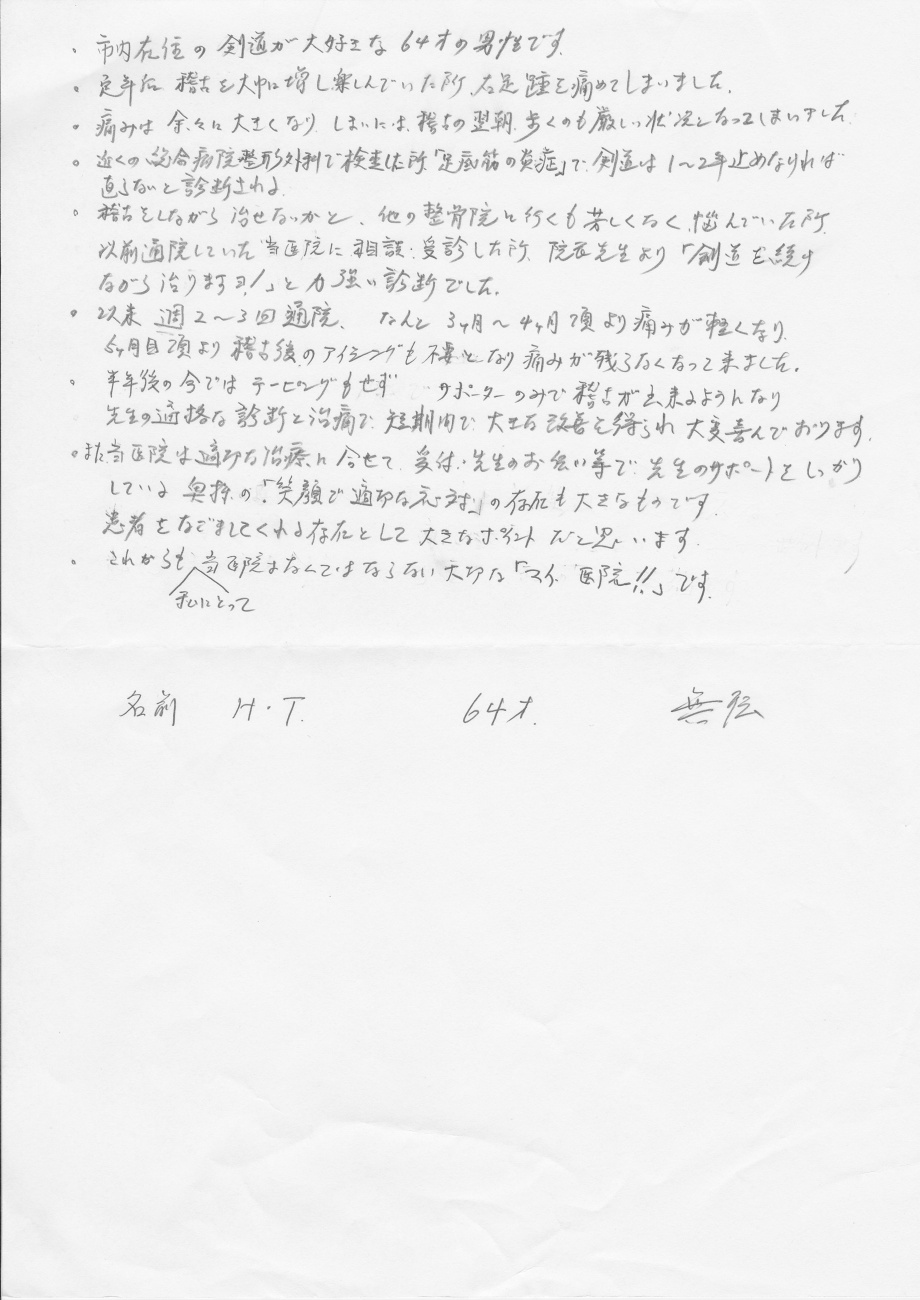 ・市内在住の剣道が大好きな64才の男性です。
・定年後 稽古を大巾に増し楽しんでいた所、右足踵を痛めてしまいました。
・痛みは余々に大きくなり しまいには、稽古の翌朝、歩くのも厳しい状況となってしまいました
・近くの総合病院整形外科で検査した所「足底筋の炎症」で、剣道は1〜2年止めなければ
直らないと診断される
・稽古をしながら治せないかと、他の整骨院に行くも芳しくなく悩んでいた所、
以前通院していた当医院に相談・受診した所、院長先生より「剣道を続け
ながら治りますヨ!」と力強い診断でした。
・以来 週2〜3回通院、なんと3ヶ月〜4ヶ月頃より痛みが軽くなり、
5ヶ月目頃より稽古後のアイシングも不要となり痛みが残らなくなって来ました。
・半年後の今ではテーピングもせず サポーターのみで稽古が出来るようになり
先生の適格な診断と治療で、短期間で、大きな改善を得られ大変喜んでおります。
・また当医院は適切な治療に合せて、受付・先生のお手伝い等で、先生のサポートをしっかり
している奥様の「笑顔で適切な応対」の存在も大きなものです。
患者をなごましてくれる存在として大きなポイントだと思います。
・これからも 当医院はなくてはならない大切な「マイ 医院!!」です。
私にとって
名前 H・T. 64才. 無職